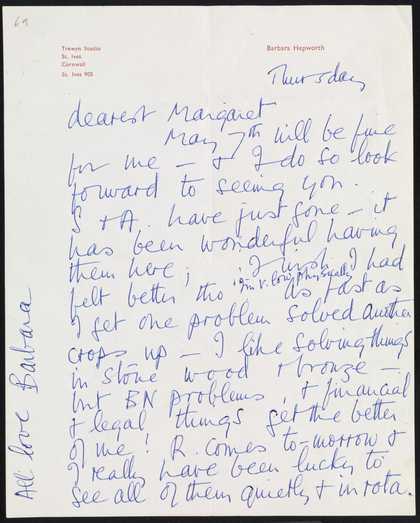 69
Trewyn Studio
St. Ives
Cornwall
St. Ives 905
Barbara Hepworth
Thursday
dearest Margaret
May 7th will be fine
for me — & I do so look
forward to seeing you.
S & A. have just gone — it
has been wonderful having
them here; I wish I had
I'm v. low physically
felt better tho' as fast as
I get one problem solved another
crops up — I like solving things
in stone wood & bronze —
but BN problems, & financial
& legal things get the better
of me! R. comes to-morrow &
I really have been lucky to
see all of them quietly & in rota.
All love Barbara